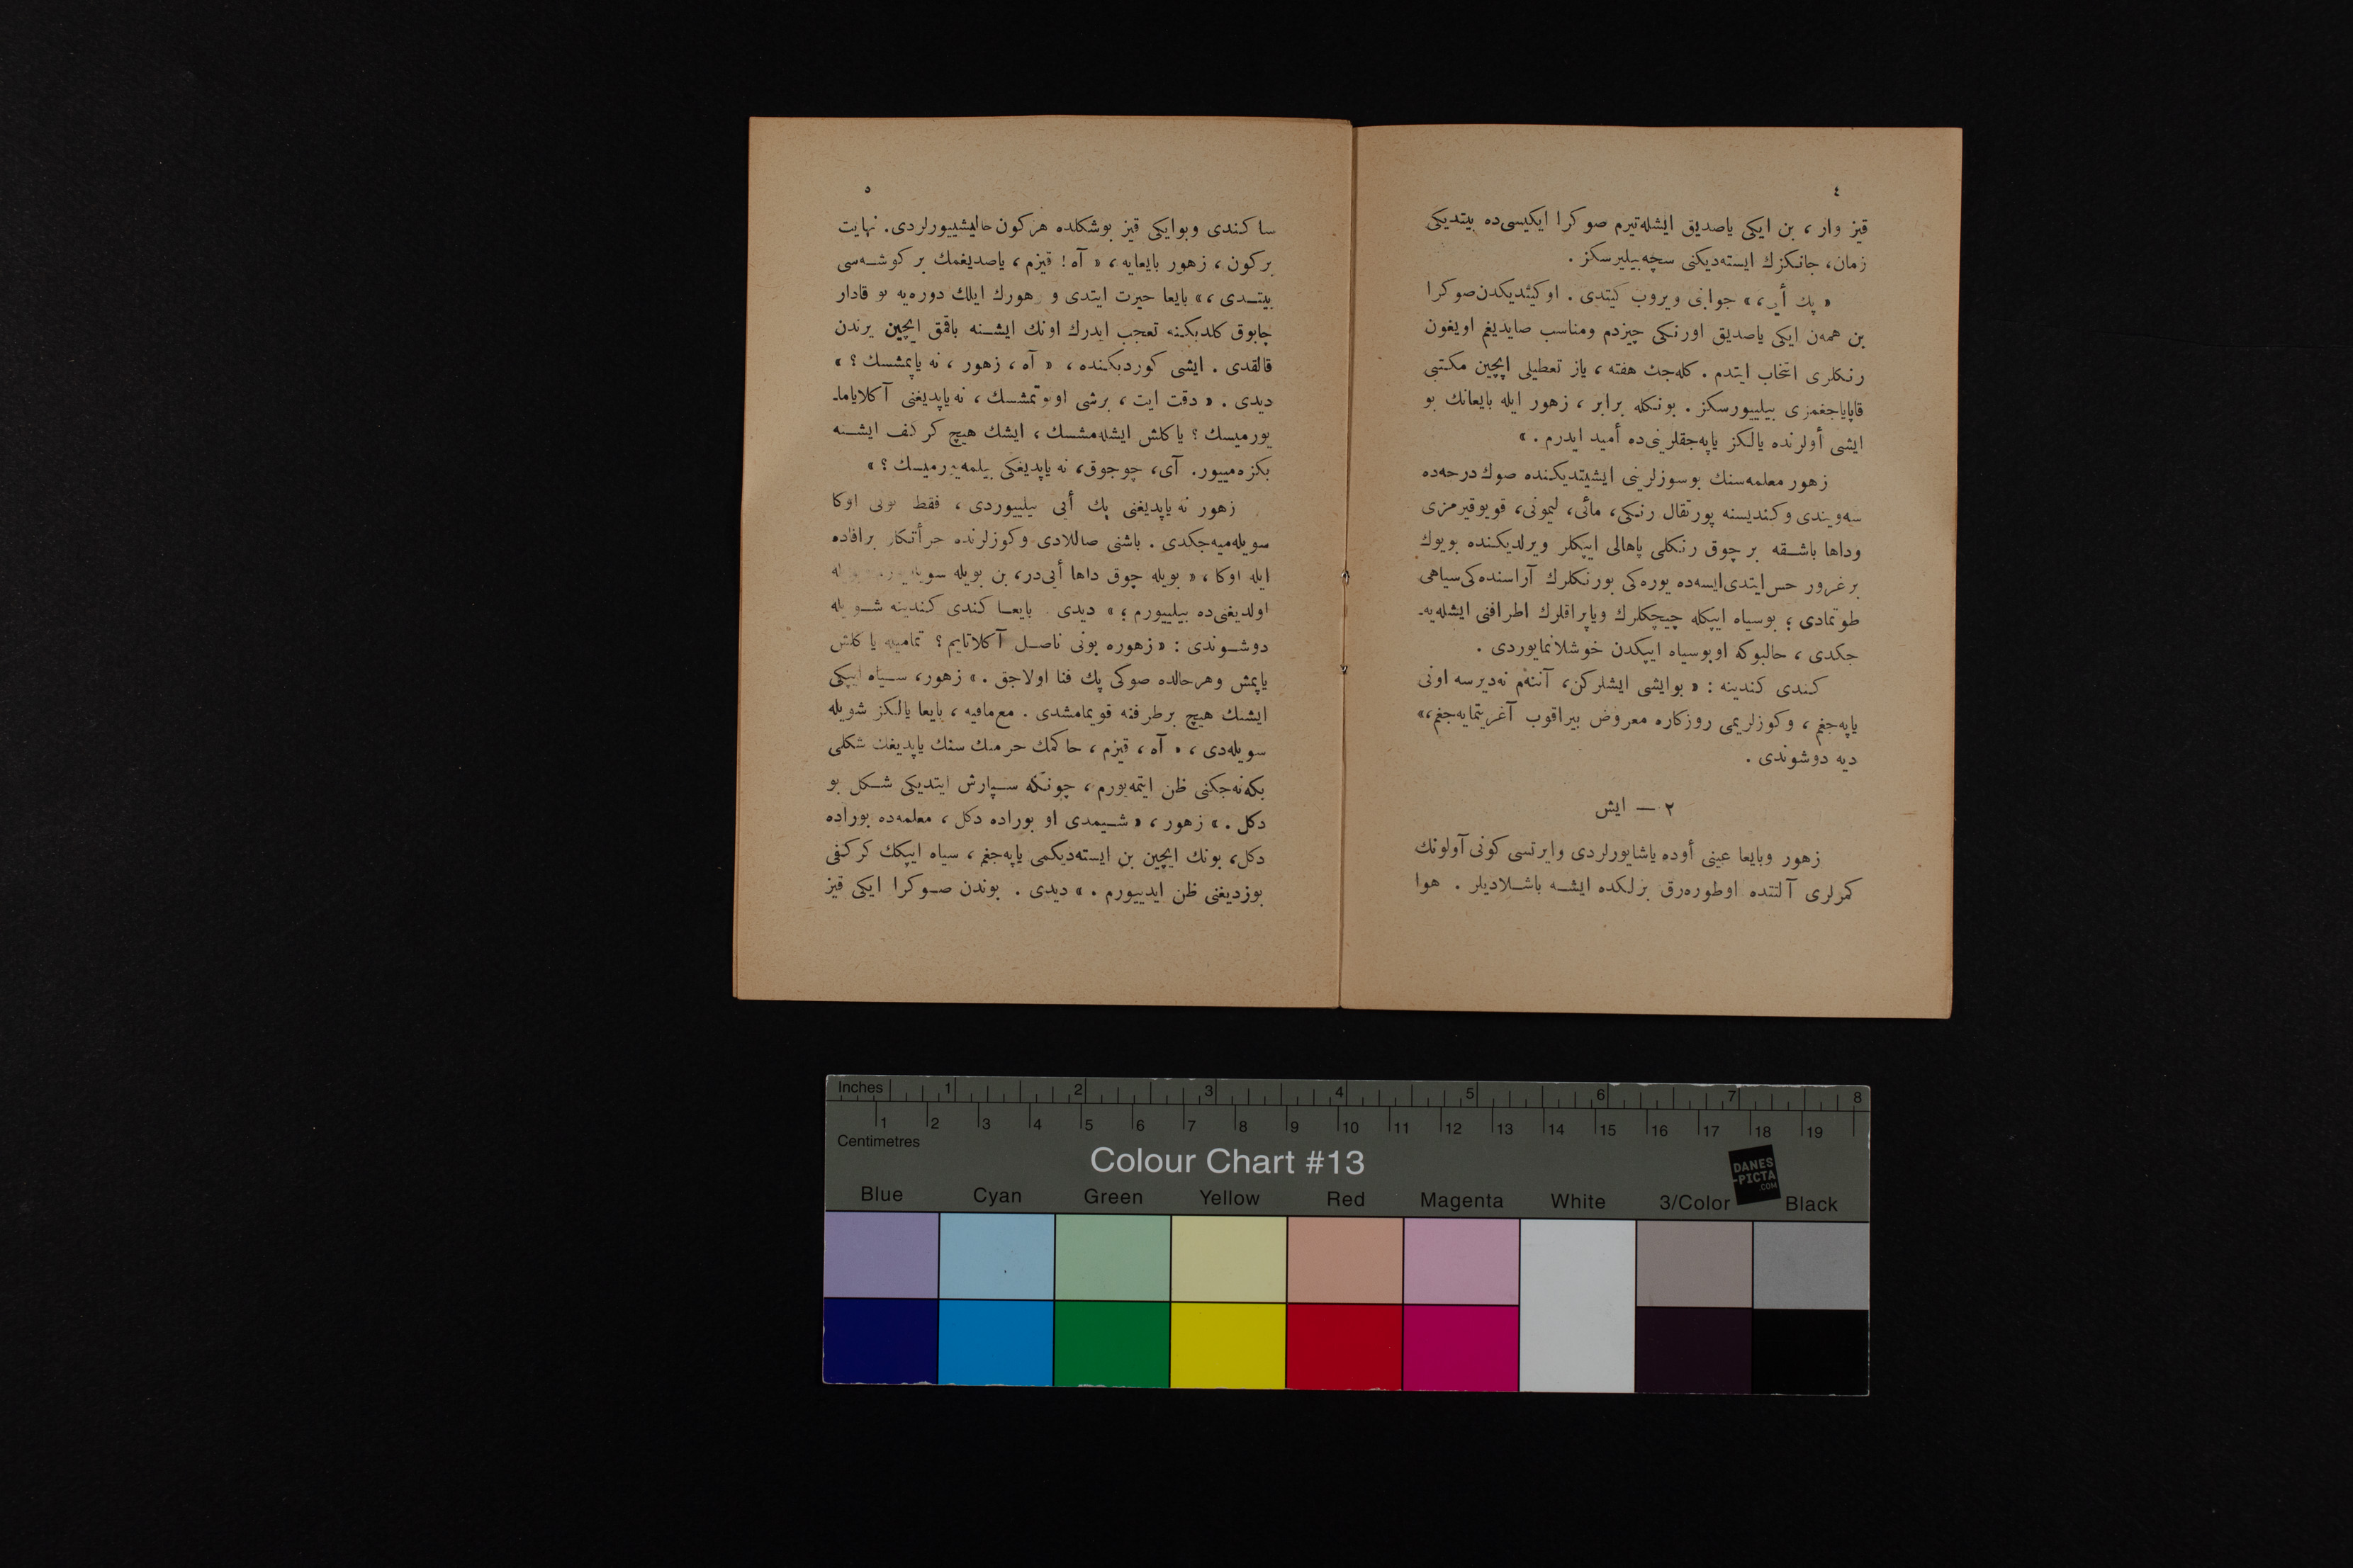 ٤
قیز وار ، بن ایكی یاصدیق ایشله‌تیرم صوكرا ایكیسی‌ده بیتدیكی
زمان، جانكزك ایسته‌دیكنی سچه‌بیلیرسكز .
« پك أیی، » جوابی ویروب كیتدی . اوكیتدیكدن‌صوكرا
بن همه‌ن ایكی یاصدیق اورنكی چیزدم ومناسب صایدیغم اویغون
رنكلری انتخاب ایتدم . كله‌جك هفته ، یاز تعطیلی ایچین مكتبی
قاپایاجغمزی بیلییورسكز . بونكله برابر ، زهور ایله بایعانك بو
ایشی أولرنده یالكز یاپه‌جقلرینی‌ده أمید ایدرم . »
زهور معلمه‌سنك بوسوزلرینی ایشیتدیكنده صوك درجه‌ده
سه‌ویندی وكندیسنه پورتقال رنكی، مائی، لیمونی، قویوقیرمزی
وداها باشقه بر چوق رنكلی پاهالی ایپكلر ویرلدیكنده بویوك
بر غرور حس‌ایتدی‌ایسه‌ده یوره‌كی بورنكلرك آراسنده‌كی‌سیاهی
طوتمادی ؛ بوسیاه ایپكله چیچكلرك ویاپراقلرك اطرافنی ایشله‌یه‌ـ
جكدی ، حالبوكه اوبوسیاه ایپكدن خوشلانمایوردی .
كندی كندینه : « بوایشی ایشلركن، آننه‌م نه‌دیرسه اونی
یاپه‌جغم ، وكوزلریمی روزكاره معروض بیراقوب آغریتمایه‌جغم،»
دیه دوشوندی .
٢ — ایش
زهور وبایعا عینی أوده یاشایورلردی وایرتسی كونی آولونك
كمرلری آلتنده اوطوره‌رق برلكده ایشه باشلادیلر . هوا
٥
ساكندی وبوایكی قیز بوشكلده هركون چالیشییورلردی. نهایت
بركون، زهور بایعایه، « آه! قیزم، یاصدیغمك بر كوشه‌سی
بیتدی ،» بایعا حیرت ایتدی و زهورك ایلك دوره‌یه بو قادار
چابوق كلدیكینه تعجب ایدرك اونك ایشنه باقمق ایچین یرندن
قالقدی . ایشی كوردیكنده ، « آه ، زهور ، نه یاپمشسك ؟ »
دیدی . « دقت ایت ، برشی اونوتمشسك ، نه‌یاپدیغنی آكلایاماـ
یورمیسك ؟ یاكلش ایشله‌مشسك ، ایشك هیچ كركف ایشنه
بكزه‌مییور. آی، چوجوق، نه یاپدیغكی بیلمه‌یورمیسك ؟ »
زهور نه یاپدیغنی پك أیی بیلییوردی ، فقط بونی اوكا
سویله‌میه‌جكدی . باشنی صاللادی وكوزلرنده جرأتكار برافاده
ایله اوكا ، « بویله چوق داها أیی‌در، بن بویله
اولدیغنی‌ده بیلییورم ؛ » دیدی . بایعا كندی كندینه شویله
دوشوندی : « زهوره بونی ناصل آكلاتایم ؟ تمامیله یاكلش
یاپمش وهرحالده صوكی پك فنا اولاجق . » زهور، سیاه ایپكی
ایشنك هیچ برطرفنه قویمامشدی . مع‌مافیه ، بایعا یالكز شویله
سویله‌دی ، « آه ، قیزم ، حاكمك حرمنك سنك یاپدیغك شكلی
بكه‌نه‌جكنی ظن ایتمه‌یورم ، چونكه سپارش ایتدیكی شكل بو
دكل . » زهور ، « شیمدی او بوراده دكل ، معلمه‌ده بوراده
دكل، بونك ایچین بن ایسته‌دیكمی یاپه‌جغم ، سیاه ایپكك كركفی
بوزدیغنی ظن ایدییورم . » دیدی . بوندن صوكرا ایكی قیز
Inches 1 2 3 4 5 6 7 8
1 2 3 4 5 6 7 8 9 10 11 12 13 14 15 16 17 18 19
Centimetres
Colour Chart #13
DANES
-PICTA
.COM
Blue Cyan Green Yellow Red Magenta White 3/Color Black